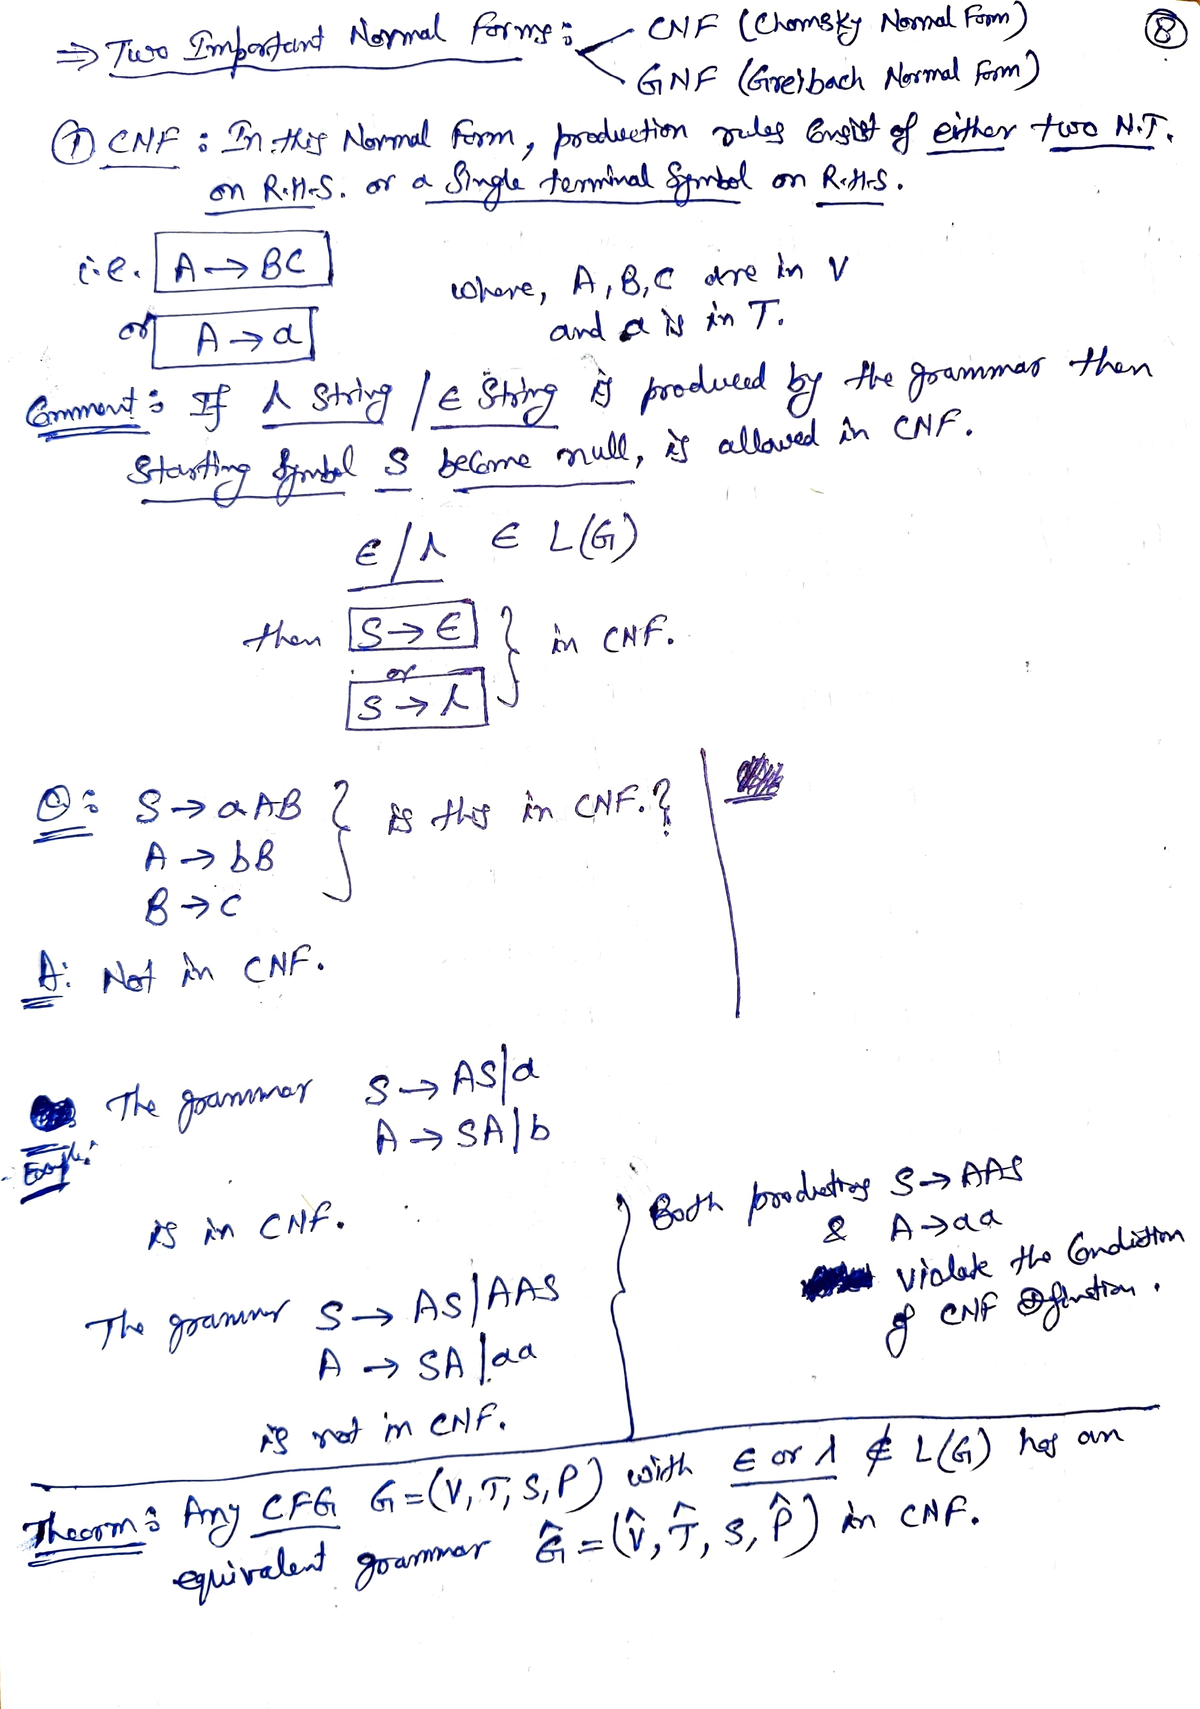 ⇒ Two Important Normal forms: CNF (Chomsky Normal Form)
GNF (Greibach Normal form)
8
① CNF : In this Normal form, production rules Consist of either two N.T.
on R.H.S. or a Single terminal Symbol on R.H.S.
i.e. A → BC
where, A, B, C are in V
or A → a
and a is in T.
Comment : If λ String / ∈ String is produced by the grammar then
Starting Symbol S become null, is allowed in CNF.
∈/λ ∈ L(G)
then S → ∈ } in CNF.
or
S → λ
Q : S → aAB } is this in CNF.?
A → bB
B → c
A: Not in CNF.
The grammar S → AS|a
A → SA|b
Example:
is in CNF.
The grammar S → AS|AAS
A → SA|aa
is not in CNF.
Both productions S → AAS
& A → aa
violate the Condition
of CNF Definition.
Theorm : Any CFG G = (V, T, S, P) with ∈ or λ ∉ L(G) has an
equivalent grammar Ĝ = (V̂, T̂, S, P̂) in CNF.